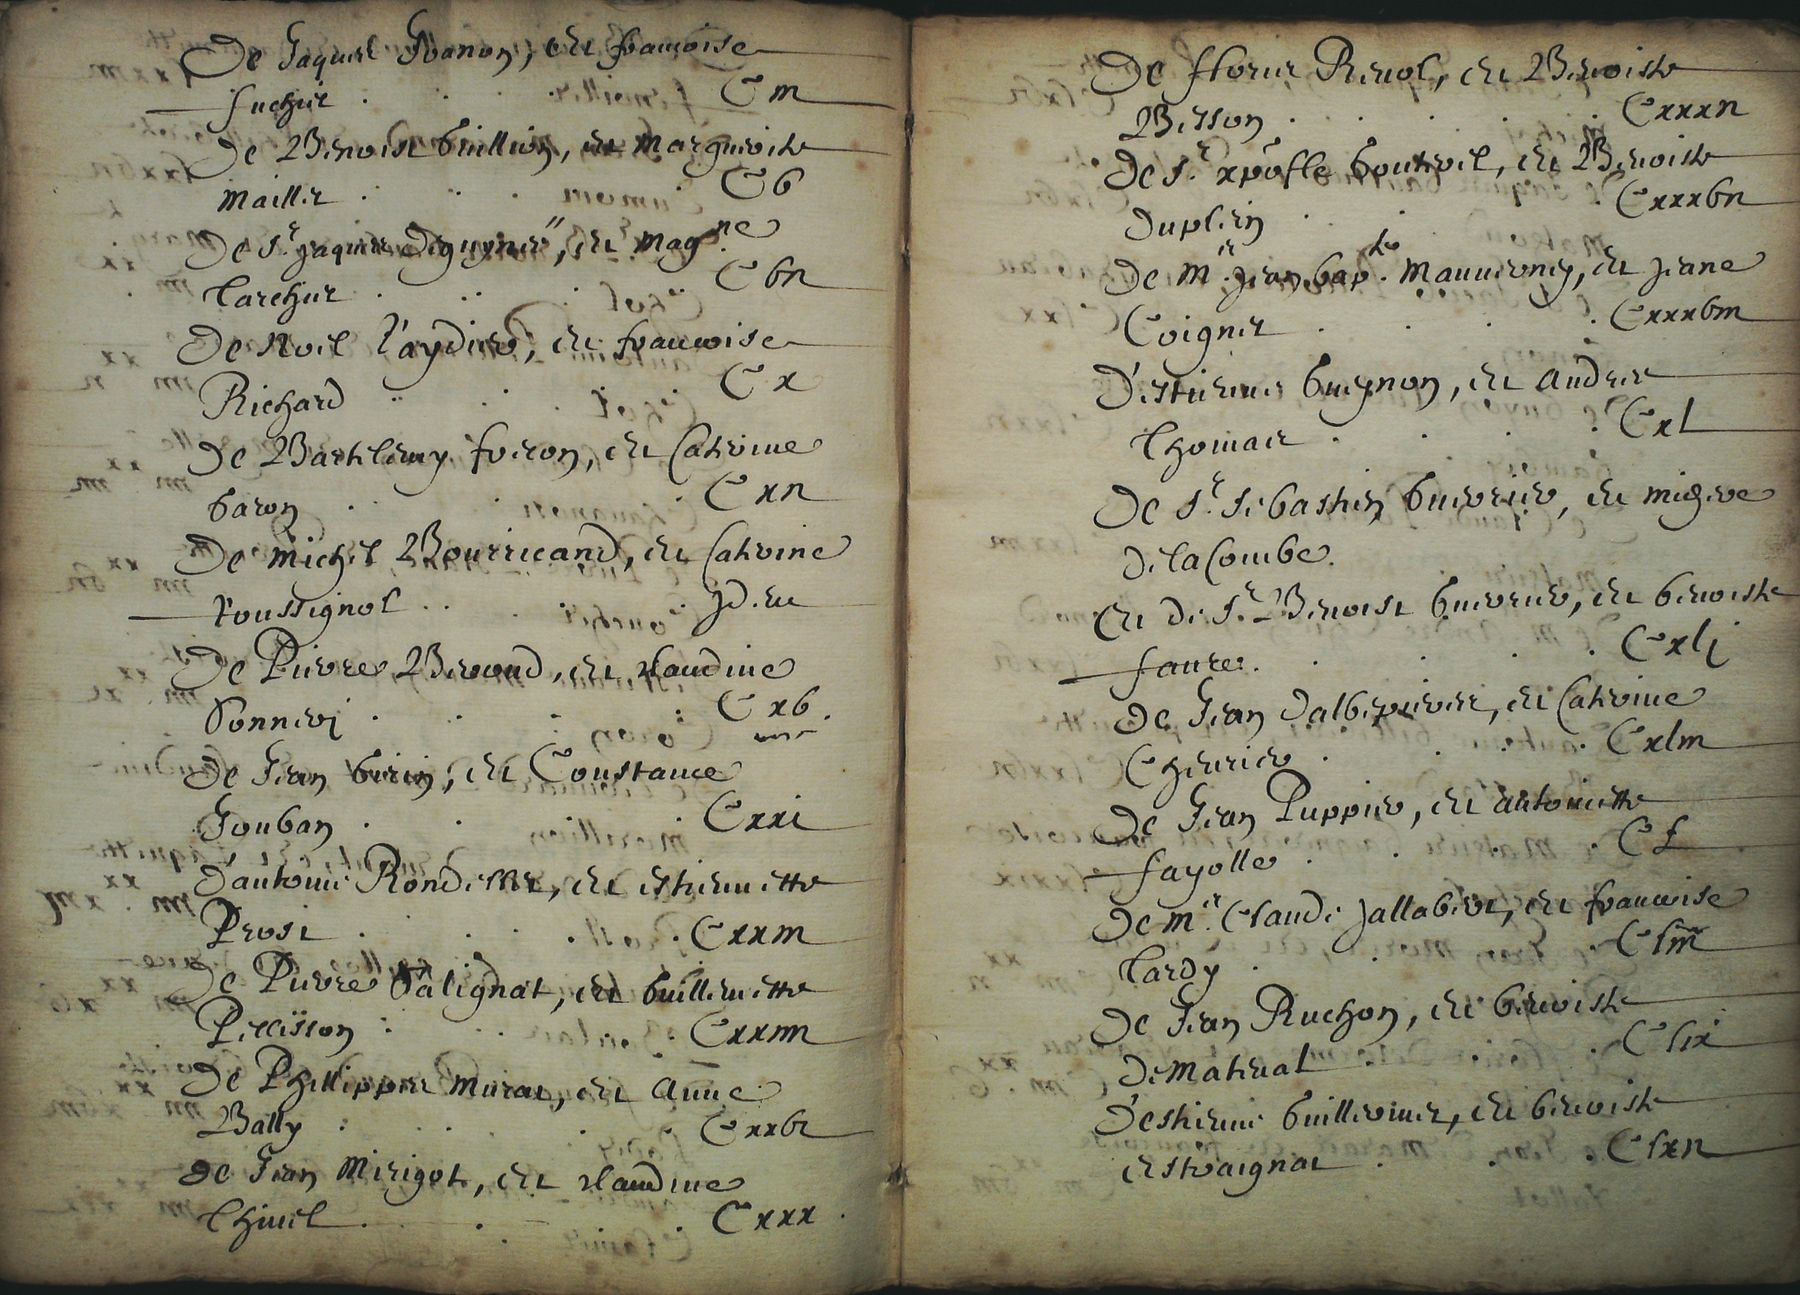 De Jaques Granon, et françoise
fuchier . . . . Ciii
De Benoist Guillion, et Marguerite
Maillet . . . Cv
De Sr Jaques Deguynet, et Magne
Carcher . . . Cvii
De Noel l'aydier, et françoise
Richard . . . Cx
De Barthlemy foron, et Catrine
baron . . . Cxii
De Michel Bourricand, et Catrine
roussignol . . . Idem
De Pierre Beroud, et claudine
bonnerj . . . Cxv
De Jean birin, et Constance
Jouban . . . Cxxi
D'antoine Rondellet, et estiennette
Prost . . . Cxxiii
De Pierre Salignat, et Guillemette
Pelisson . . . Cxxiiii
De Phillippes Murat, et Anne
Bally . . . Cxxvi
De Jean Mirigot, et claudine
Thinel . . . Cxxx
De floris Renol, et Benoiste
Bisson . . . Cxxxii
De Sr xpofle bontroil, et Benoiste
Duplein . . . Cxxxvii
De Mr Jean bapte Mauverney, et Jeane
Coignet . . . Cxxxviii
D'estienne Gueynon, et Andree
Thomas . . . Cxl
De Sr Sebastien Guerrier, et
de la Combe.
Et de Sr Benoist Guerrier, et benoiste
faure . . . Cxlj
De Jean Dalbepierre, et Catrine
Cherrier . . . Cxliii
De Jean Puppier, et Antoinette
fayolle . . . Cl
De Mr Claude Jallabert, et françoise
Tardy . . . Cliii
De Jean Ruchon, et benoiste
De Matenal . . . Clix
D'estienne Guilleminet, et benoiste
estraignat . . . Clxii